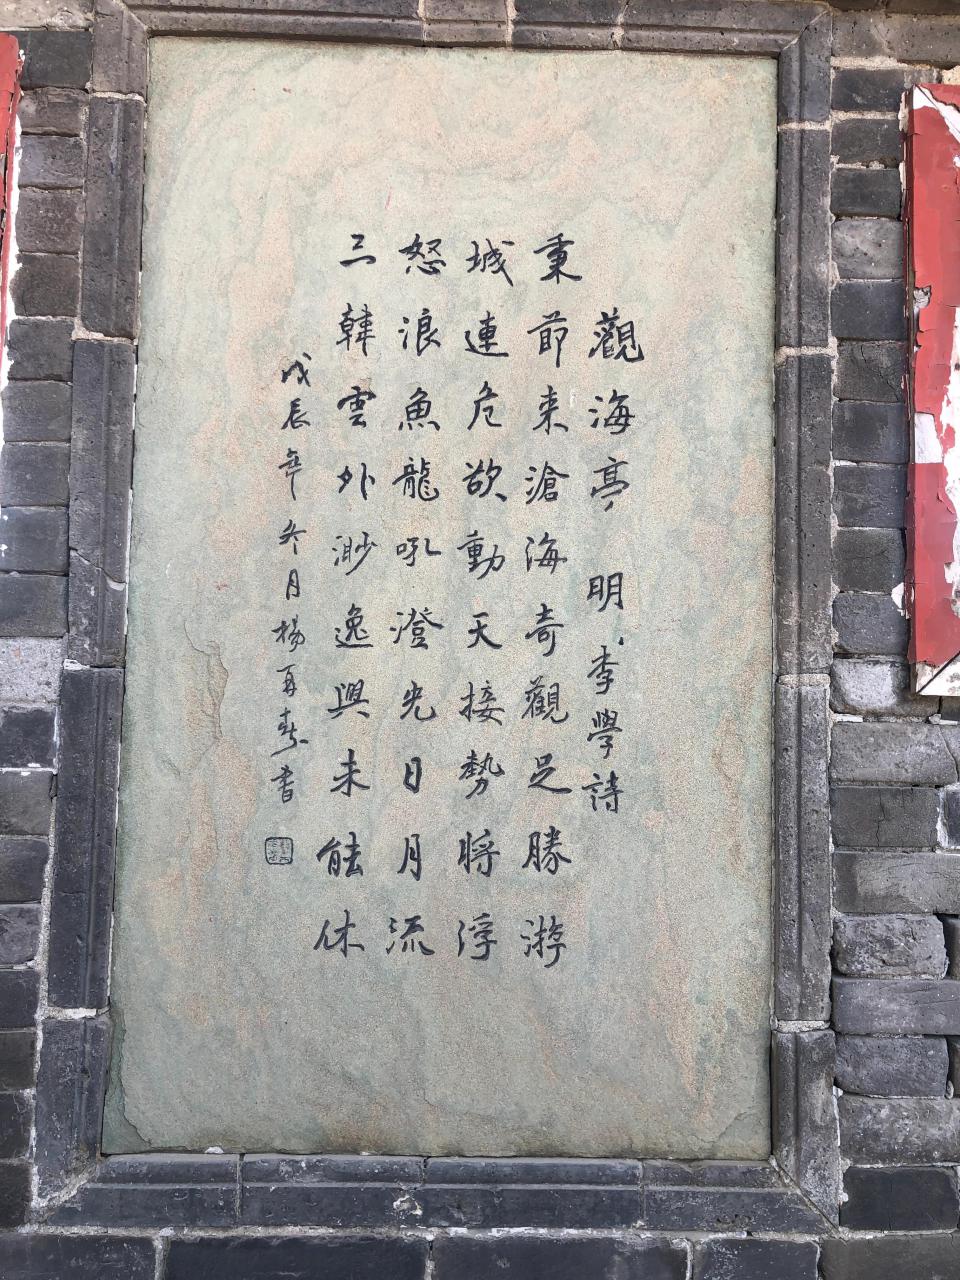 觀海亭 明 李學詩
秉節来滄海奇觀足勝游
城連危欲動天接勢將浮
怒浪魚龍吼澄光日月流
三韓雲外渺逸興未能休
戊辰年冬月楊再春書